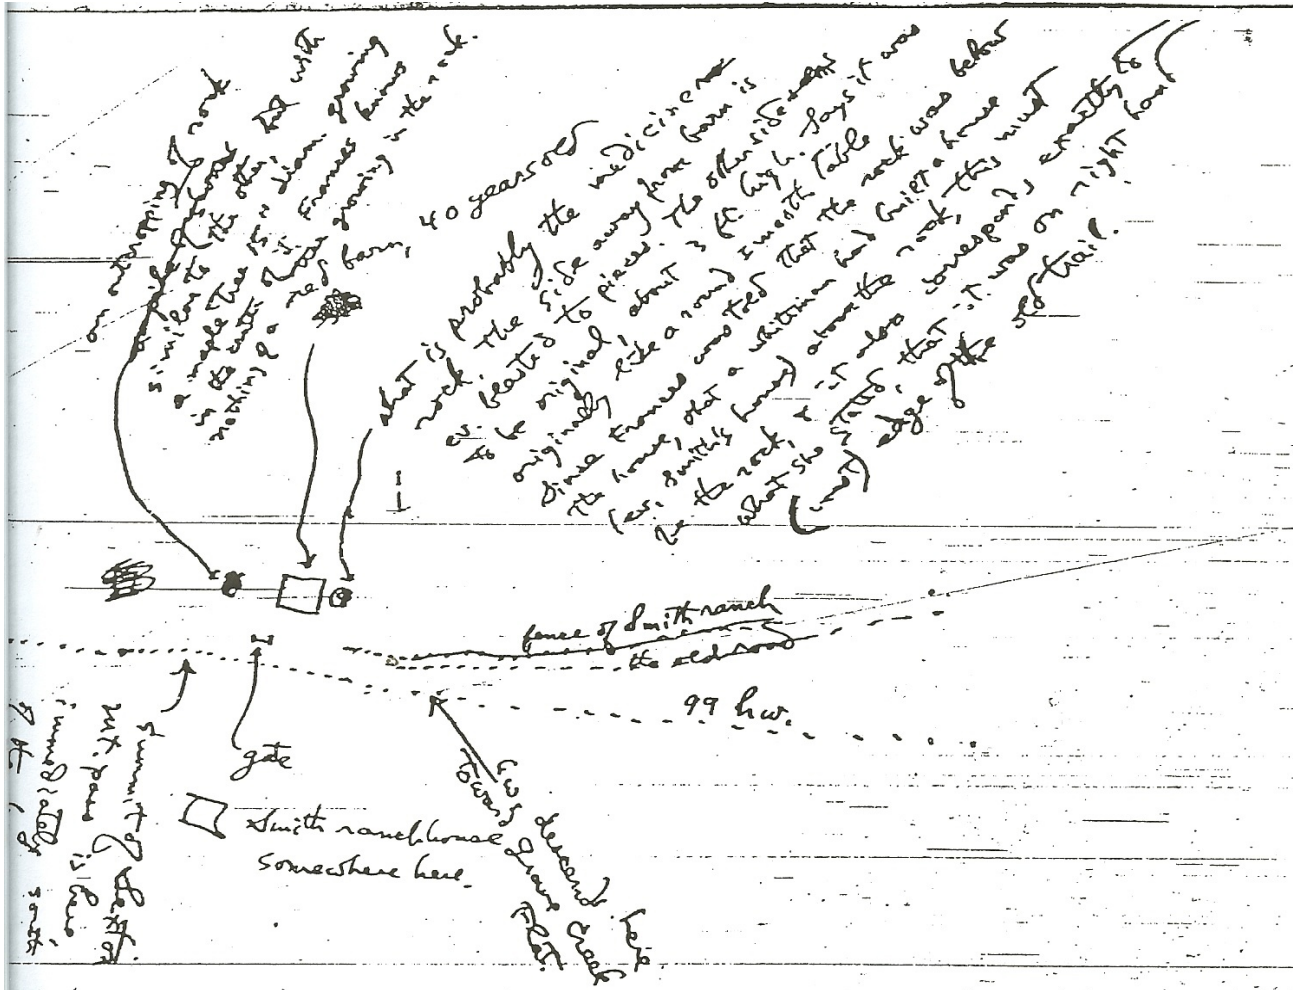 an outcropping of rock
similar to the other, but with
a maple tree 18 in. diam. growing
is the earth
nothing of a
growing in the rock.
red barn, 40 years old
what is probably the medicine
rock. The side away from barn is
ev. blasted to pieces. The other side
to be original, about 3 ft. high. Says it was
originally like a round 1 month table
Since Frances was told that the rock was below
the house, that a whiteman had built a house
(ev. Smith's house) above the rock, this must
be the rock, & it also corresponds exactly to
what she stated, that it was on right hand
(west) edge of the old trail.
fence of Smith ranch
the old road
99 hw.
gate
Smith ranchhouse
somewhere here.
summit of
mt. pass is here,
immediately south
of the
hwy descends here
toward Grave Creek
Flat.